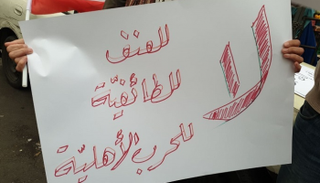 لا
للعنف
للطائفية
للحرب الأهلية